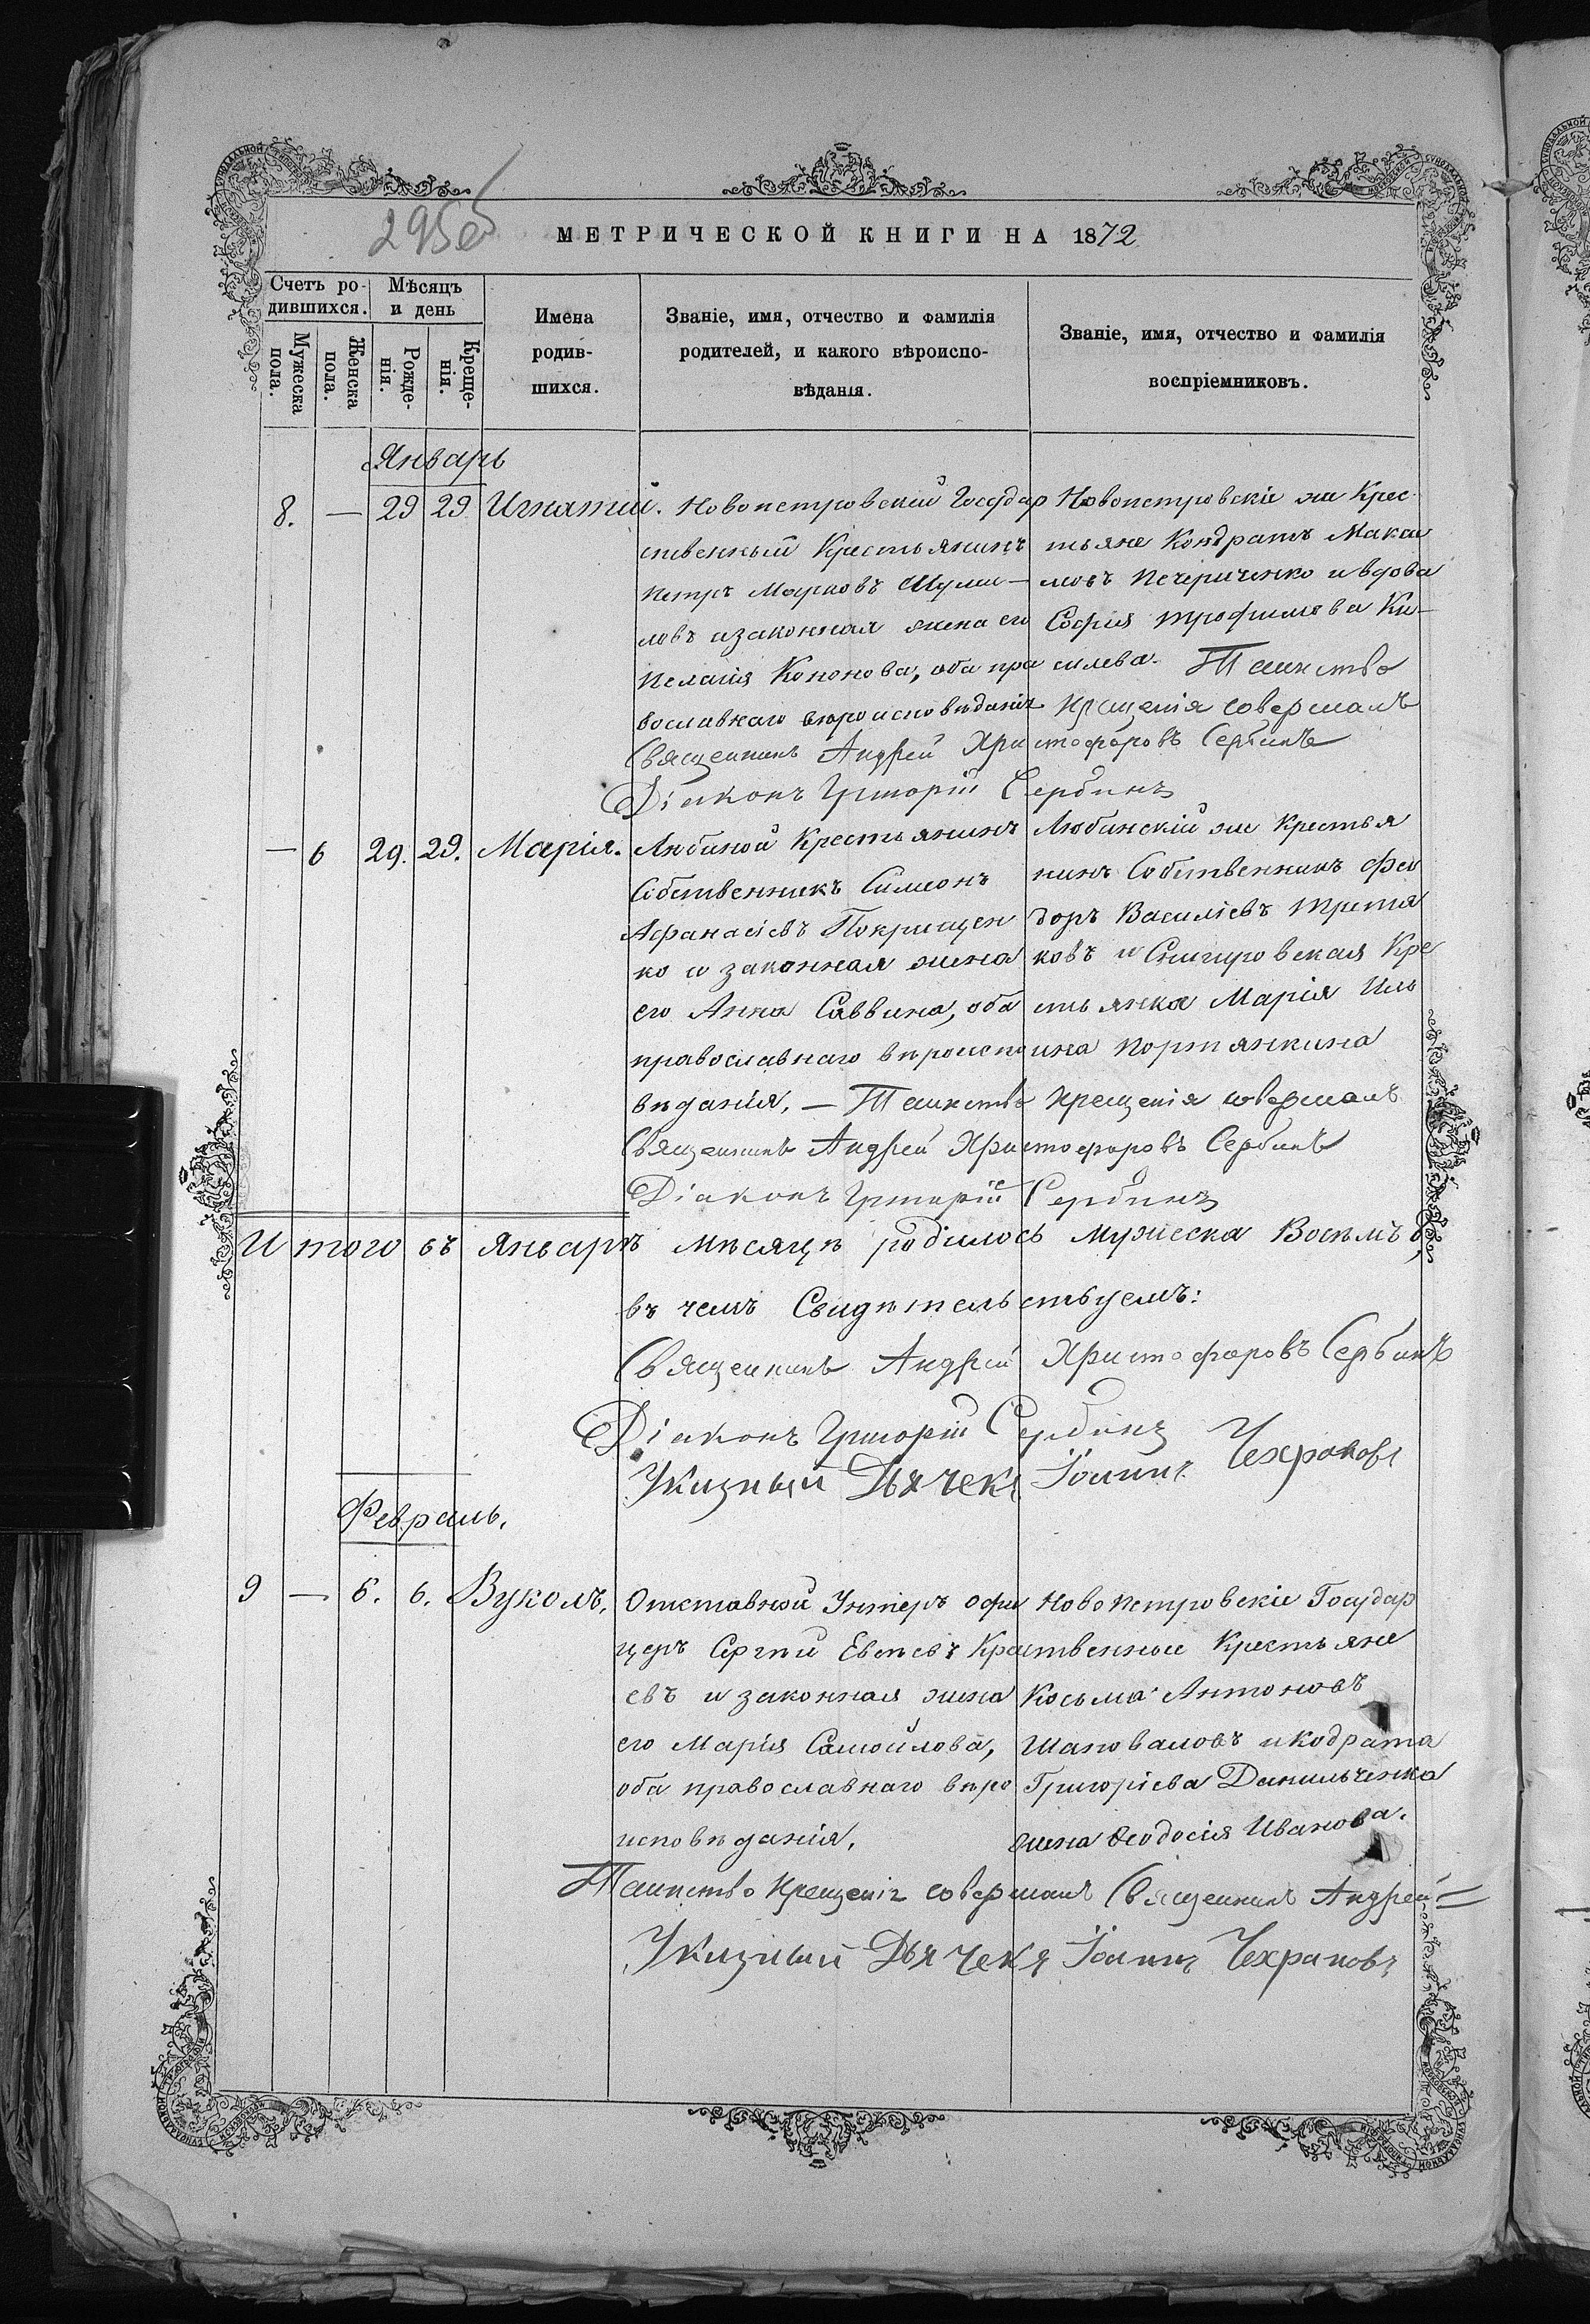 295об
МЕТРИЧЕСКОЙ КНИГИ НА 1872
Счетъ ро-
дившихся.
Мѣсяцъ
и день
Мужеска
пола.
Женска
пола.
Рожде-
нія.
Креще-
нія.
Имена
родив-
шихся.
Званіе, имя, отчество и фамилія
родителей, и какого вѣроиспо-
вѣданія.
Званіе, имя, отчество и фамилія
воспріемниковъ.
Январь
8. — 29 29 Игнатий.
Новопетровский Государ
ственный Крестьянинъ
Петръ Марковъ Шуми-
ловъ изаконная жена его
Пелагія Кононова, оба пра
вославнаго вѣроисповѣданія
Новопетровскіе же Крес-
тьяне Кондратъ Макси
мовъ Печериченко и вдова
Софія Трофимова Ки-
силева. Таинство
крещенія совершалъ
Священникъ Андрей Христофоровъ Сербинъ
Діаконъ Григорій Сербинъ
— 6 29. 29. Марія.
Любиной Крестьянинъ
Собственникъ Симеонъ
Афанасіевъ Покрищен
ко и законная жена
его Анна Саввина, оба
православнаго вѣроиспо
вѣданія. —
Любинскій же Крестья
нинъ Собственникъ Фео
доръ Василіевъ Третья
ковъ и Снигировская Кре
стьянка Марія Иль
ина Портянкина
Таинство крещенія совершалъ
Священникъ Андрей Христофоровъ Сербинъ
Діаконъ Григорій Сербинъ
Итого въ Январѣ мѣсяцѣ родилось Мужеска Восемъ 8,
въ чемъ Свидѣтельствуемъ:
Священникъ Андрей Христофоровъ Сербинъ
Діаконъ Григорій Сербинъ
Указный Дьячекъ Іоаннъ Чехрановъ
Февраль.
9 — 6. 6. Вуколъ.
Отставной Унтеръ офи
церъ Сергѣй
евъ и законная жена
его Марія Самойлова,
оба православнаго вѣро
исповѣданія.
Новопетровскіе Государ
ственные Крестьяне
Косьма Антоновъ
Шаповаловъ и Кодрата
Григоріева Данильченка
жена Феодосія Иванова.
Таинство крещенія совершалъ Священникъ Андрей =
Указный Дьячекъ Іоаннъ Чехрановъ